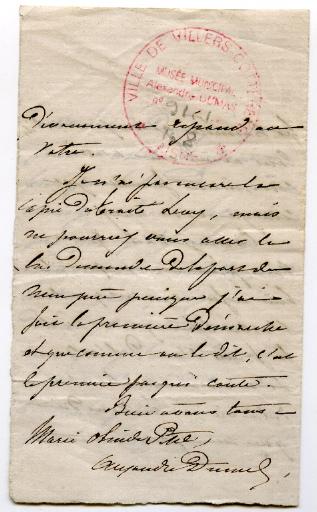 VILLE DE VILLERS-COTTERETS
MUSÉE MUNICIPAL
Alexandre DUMAS
n°
Dévouement répond au
votre.
Je n'ai pas encore la
copie du traité Levy, mais
ne pourriez vous aller le
lui demander de la part de
mon père puisque j'ai
fait la première démarche
et que comme on le dit, c'est
le premier pas qui coute.
Bien à vous tous
Marie
Alexandre Dumas,